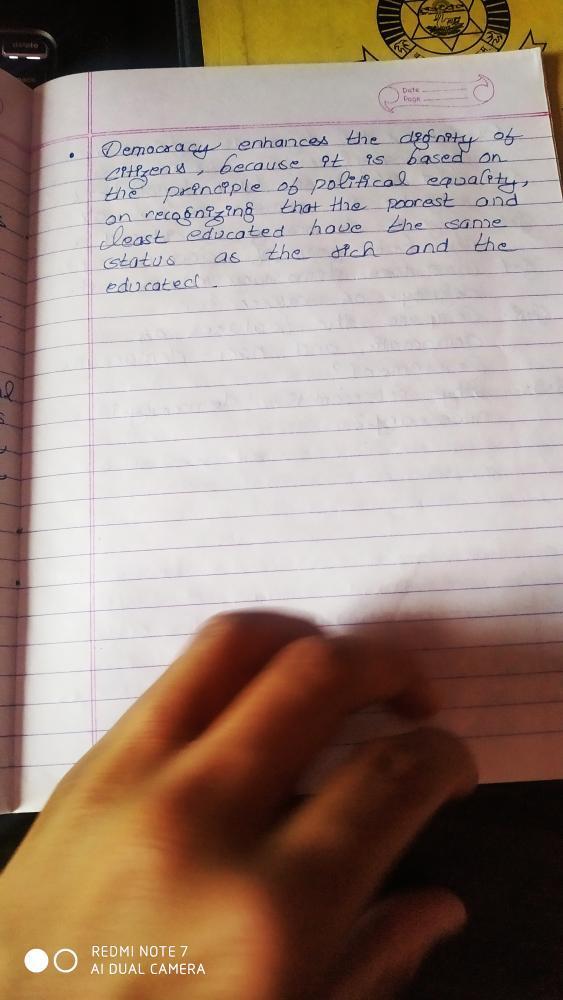 delete
Date
Page
• Democracy enhances the dignity of
citizens, because it is based on
the principle of political equality,
on recognizing that the poorest and
least educated have the same
status as the rich and the
educated.
al
REDMI NOTE 7
AI DUAL CAMERA